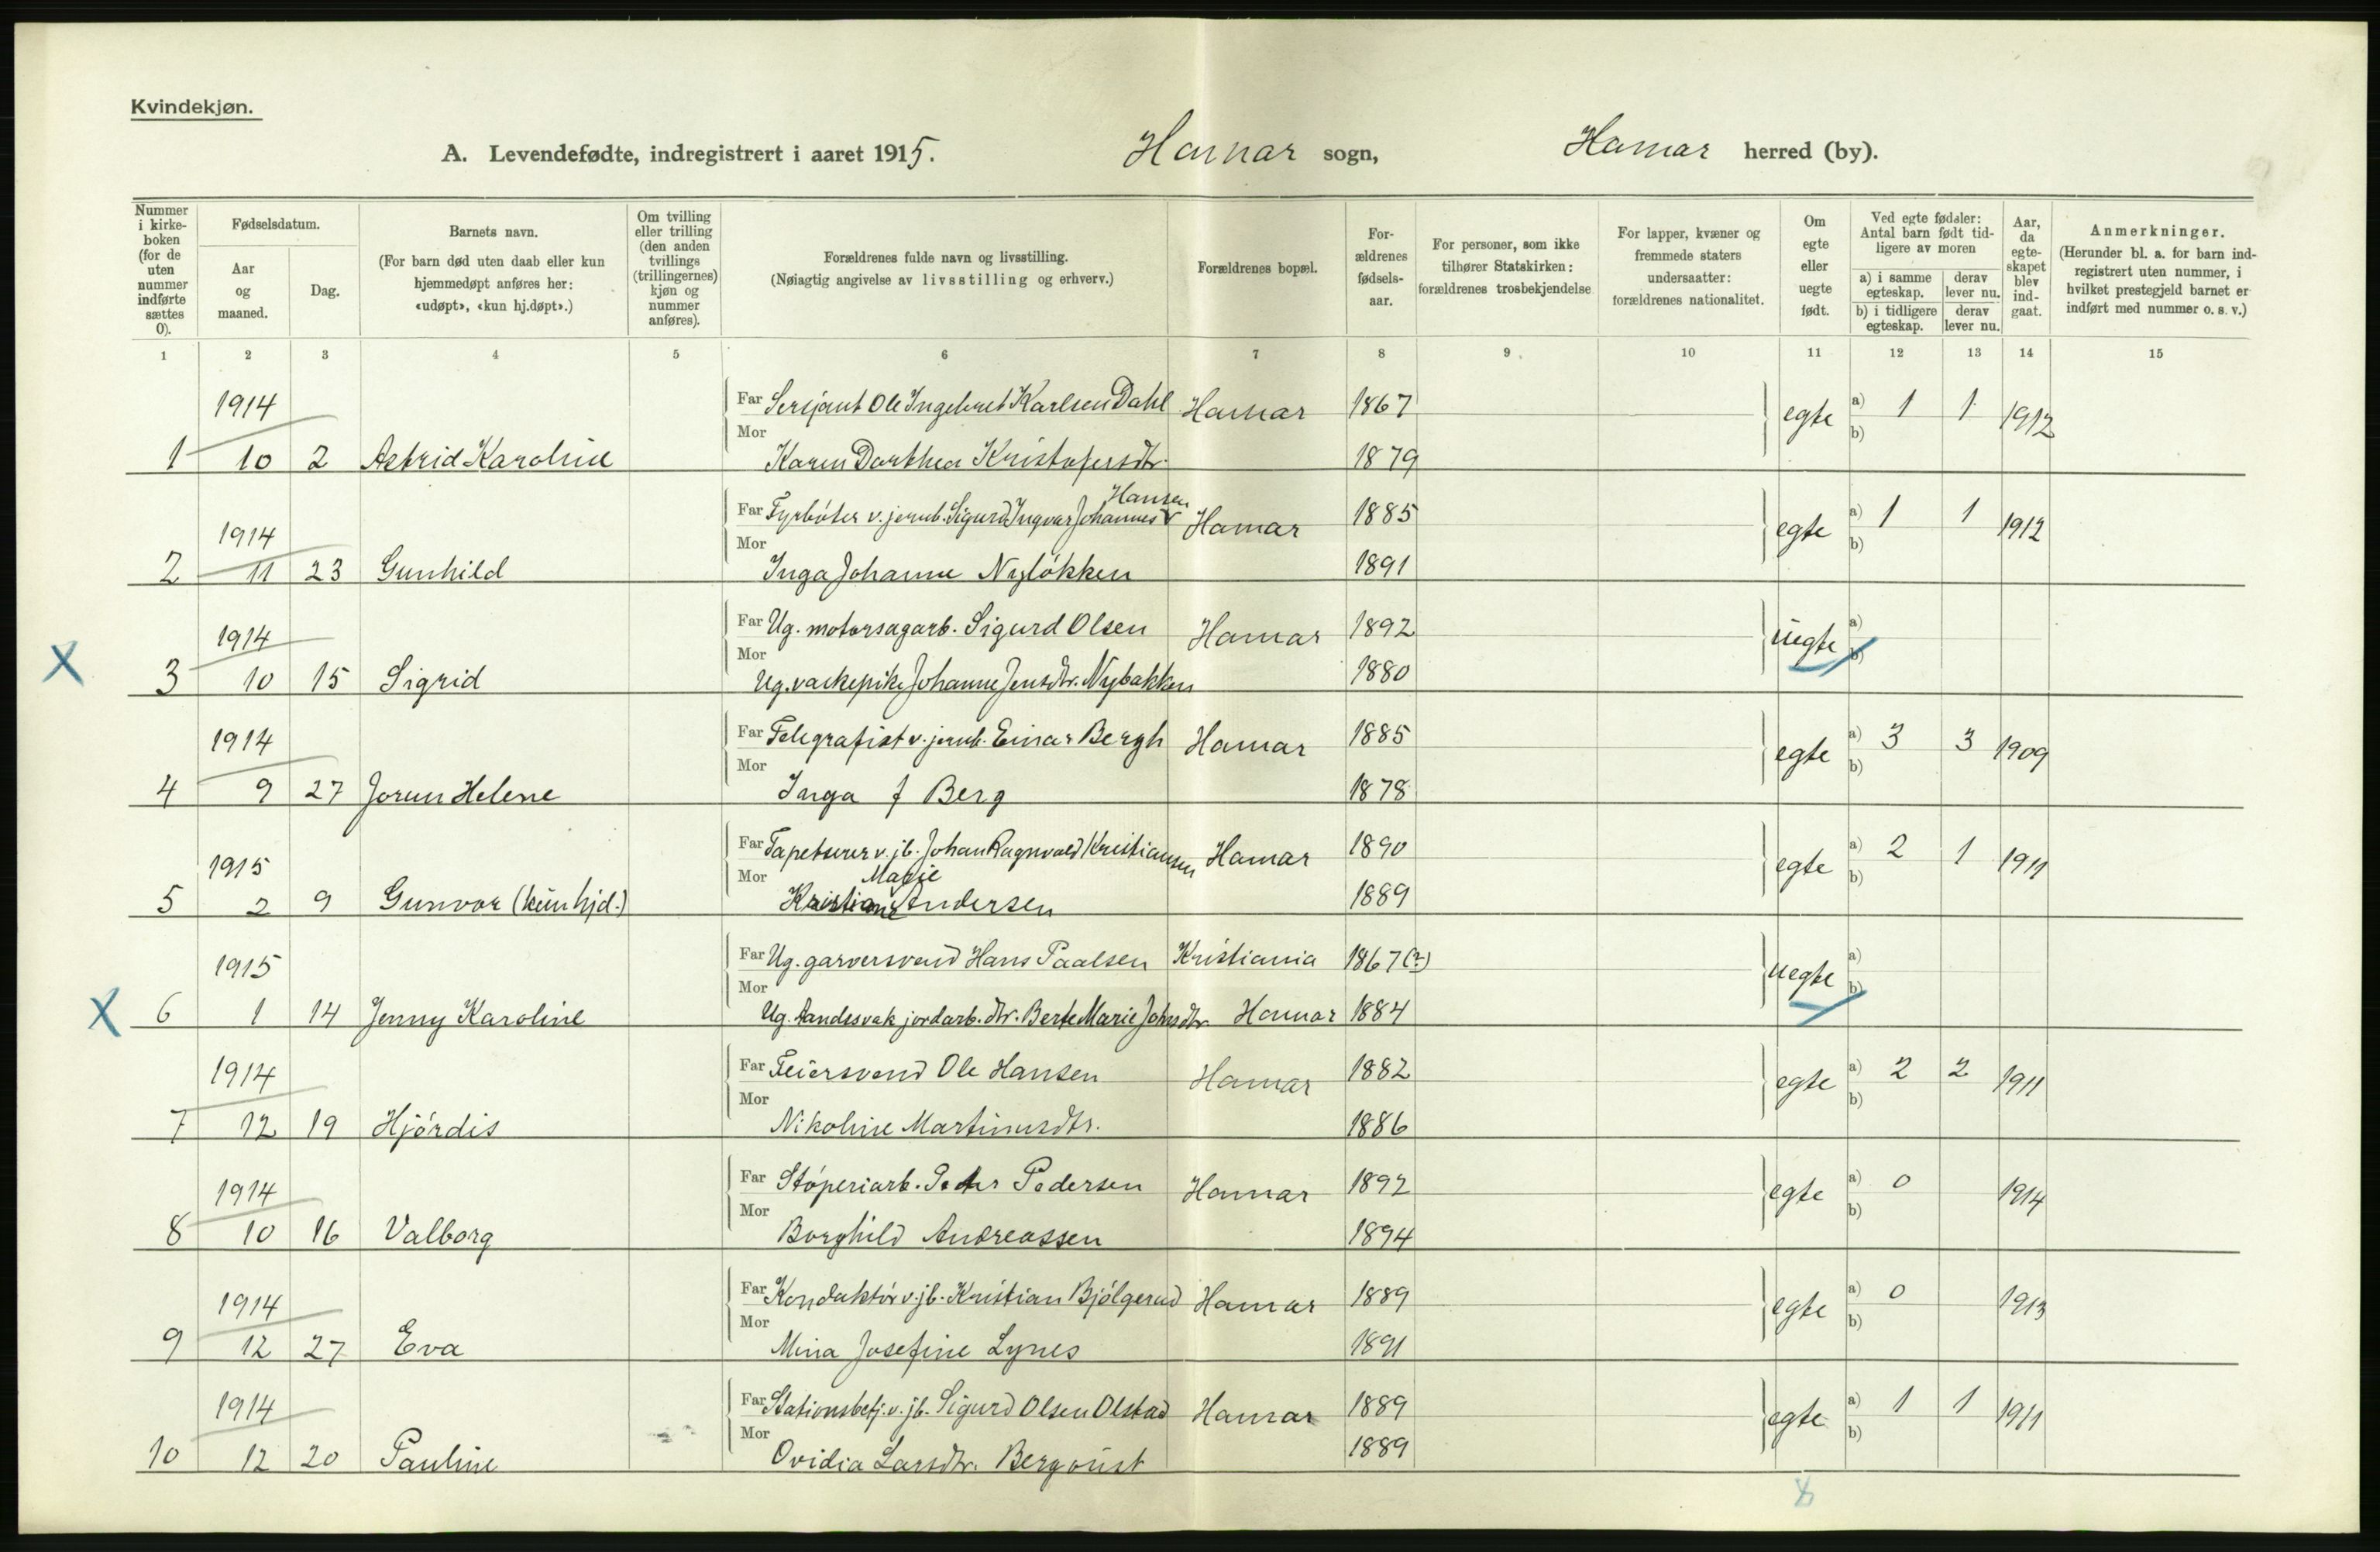 Kvindekjøn.
A. Levendefødte, indregistrert i aaret 1915. Hamar sogn, Hamar herred (by).
Nummer i kirke-boken (for de uten nummer indførte sættes 0).
Fødselsdatum.
Aar og maaned.
Dag.
Barnets navn.
(For barn død uten daab eller kun hjemmedøpt anføres her: «udøpt», «kun hj.døpt».)
Om tvilling eller trilling (den anden tvillings (trillingernes) kjøn og nummer anføres).
Forældrenes fulde navn og livsstilling.
(Nøiagtig angivelse av livsstilling og erhverv.)
Forældrenes bopæl.
For-ældrenes fødsels-aar.
For personer, som ikke tilhører Statskirken: forældrenes trosbekjendelse
For lapper, kvæner og fremmede staters undersaatter: forældrenes nationalitet.
Om egte eller uegte født.
Ved egte fødsler: Antal barn født tid-ligere av moren
a) i samme egteskap. derav lever nu.
b) i tidligere egteskap. derav lever nu.
Aar, da egte-skapet blev ind-gaat.
Anmerkninger.
(Herunder bl. a. for barn ind-registrert uten nummer, i hvilket prestegjeld barnet er indført med nummer o. s. v.)
1 2 3 4 5 6 7 8 9 10 11 12 13 14 15
1914 Far Sersjant Ole Ingebret Karlsen Dahl Hamar 1867 egte a) 1 1 1912
b)
1 10 2 Astrid Karoline Mor Karen Dorthea Kristofersdtr. 1879
Hansen
1914 Far Fyrbøter v. jernb. Sigurd Ingvar Johannes v Hamar 1885 egte a) 1 1 1912
b)
2 11 23 Gunhild Mor Inga Johanne Nyløkken 1891
1914 Far Ug. motorsagarb. Sigurd Olsen Hamar 1892 uegte a)
b)
X 3 10 15 Sigrid Mor Ug. vaskepike Johanne Jensdtr. Nybakken 1880
1914 Far Telegrafist v. jernb. Einar Bergh Hamar 1885 egte a) 3 3 1909
b)
4 9 27 Jorun Helene Mor Inga f Berg 1878
1915 Far Tapetserer v. jb. Johan Ragnvald Kristiansen Hamar 1890 egte a) 2 1 1911
b)
Marie
5 2 9 Gunvor (kun hjd.) Mor Kristiane Andersen 1889
1915 Far Ug. garversvend Hans Paalsen Kristiania 1867 (?) uegte a)
b)
X 6 1 14 Jenny Karoline Mor Ug. jordarb. dtr. Berte Marie Johsdtr Hamar 1884
1914 Far Feiersvend Ole Hansen Hamar 1882 egte a) 2 2 1911
b)
7 12 19 Hjørdis Mor Nikoline Martinusdtr. 1886
1914 Far Støperiarb. Peder Pedersen Hamar 1892 egte a) 0 1914
b)
8 10 16 Valborg Mor Borghild Andreassen 1894
1914 Far Konduktør v. jb. Kristian Bjølgerud Hamar 1889 egte a) 0 1913
b)
9 12 27 Eva Mor Mina Josefine Lynes 1891
1914 Far Stationsbetj. v. jb. Sigurd Olsen Olstad Hamar 1889 egte a) 1 1 1911
b)
10 12 20 Pauline Mor Ovidia Larsdtr. Bergqvist 1889